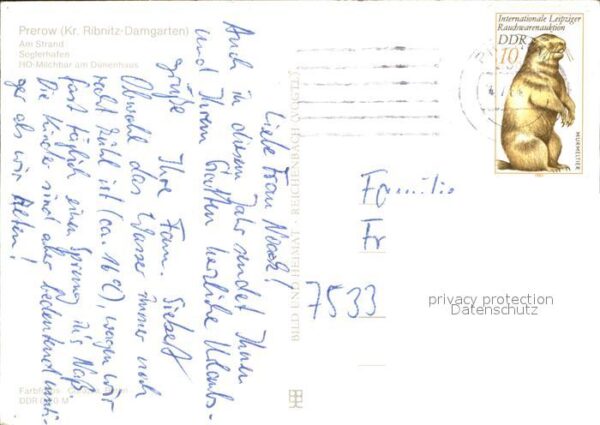 Prerow (Kr. Ribnitz-Damgarten)
Am Strand
Seglerhafen
HO-Milchbar am Dünenhaus
Liebe Frau
Auch in diesem Jahr sendet Ihnen
und Ihrem Gatten herzliche Urlaubs-
grüße Ihre Fam. Siebert
Obwohl das Wasser immer noch
recht kühl ist (ca. 16°C), wagen wir
fast täglich einen Sprung in's Naß.
Die Kinder sind aber bedeutend muti-
ger als wir Alten!
BILD UND HEIMAT
Internationale Leipziger
Rauchwarenauktion
DDR
10
MURMELTIER
Familie
Fr
7533
privacy protection
Datenschutz